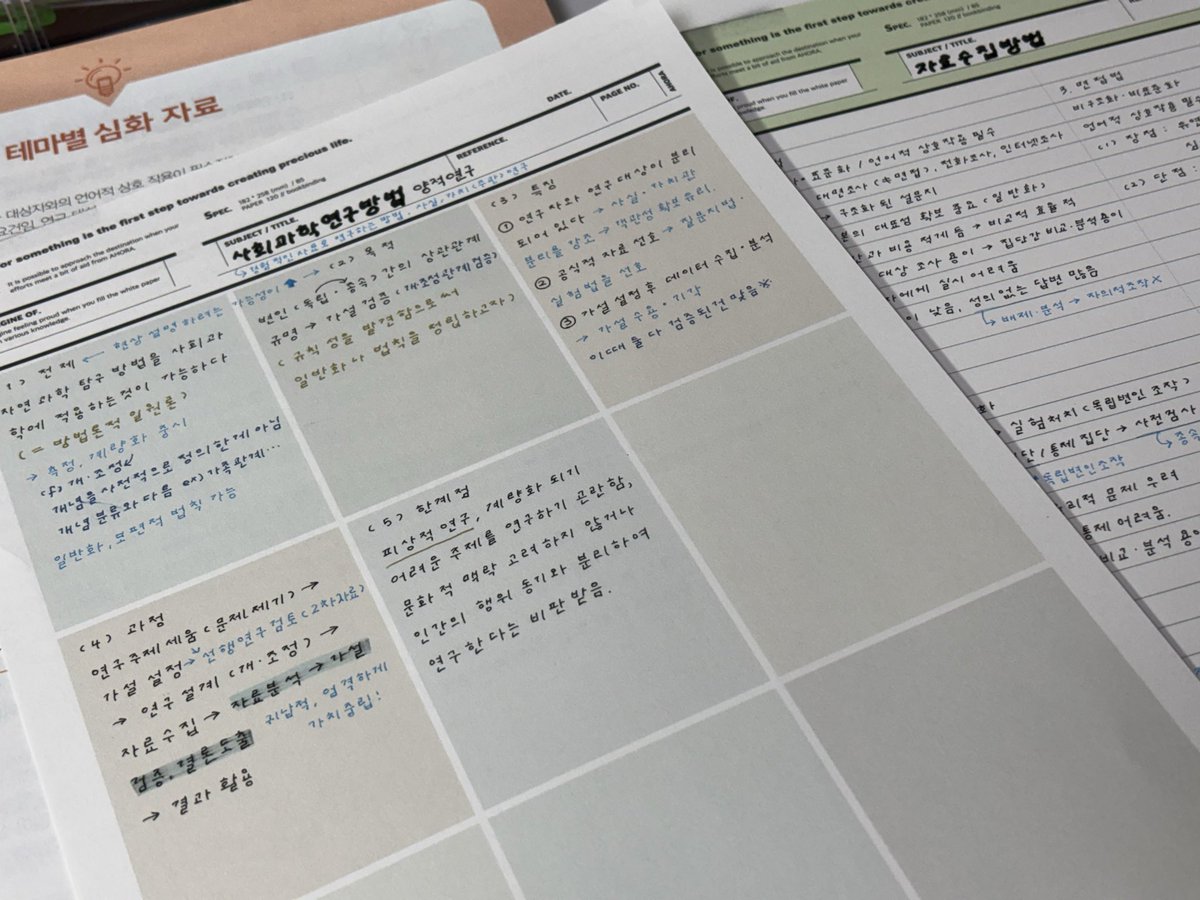 테마별 심화 자료
대상자와의 언어적 상호 작용이
or something is the first step towards creating precious life.
It is possible to approach the destination when your
efforts meet a bit of aid from AHORA.
GINE OF.
gine feeling proud when you fill the white paper
with various knowledge.
SPEC. 182 * 258 (mm) / 85
PAPER 120 // bookbinding
SUBJECT / TITLE.
사회과학연구방법 양적연구
REFERENCE.
DATE.
PAGE NO.
AHORA
↳ 경험적인 자료로 연구하는 방법. 사실, 가치(주관) 연구
(1) 전제 ← 현상 설명하려는
자연 과학 탐구 방법을 사회과
학에 적용하는것이 가능하다
(= 방법론적 일원론)
→ 측정, 계량화 중시
(f) 개·조정
개념을 사전적으로 정의한게 아님
개념 분류와 다음 ex) 가족관계...
일반화, 보편적 법칙 가능
가능성이 ↑ → (2) 목적
변인(독립·종속)간의 상관관계
규명 → 가설 검증(개·조정관계검증)
(규칙성을 발견함으로써
일반화나 법칙을 정립하고자)
(3) 특징
① 연구자와 연구대상이 분리
되어 있다 → 사실·가치관
분리를 강조 → 객관성 확보유리.
② 공식적 자료 선호 → 질문지법.
실험법을 선호
③ 가설 설정후 데이터 수집·분석
→ 가설 수용·기각
이때 둘다 검증된건 맞음※
(4) 과정
연구주제세움(문제제기) →
가설 설정→선행연구검토(2차자료)
→ 연구 설계(개·조정) →
자료수집 → 자료분석 → 가설
검증, 결론도출
귀납적, 엄격하게
가치중립!
→ 결과 활용
(5) 한계점
피상적 연구, 계량화 되기
어려운 주제를 연구하기 곤란함,
문화적 맥락 고려하지 않거나
인간의 행위 동기와 분리하여
연구한다는 비판 받음.
or something is the first step towards
is possible to approach the destination when your
efforts meet a bit of aid from AHORA.
proud when you fill the white paper
SPEC. 182 * 258 (mm) / 85
PAPER 120 // bookbinding
SUBJECT / TITLE.
자료수집방법
표준화 / 언어적 상호작용 필수
대면조사(축면접), 전화조사, 인터넷조사
→ 구조화된 설문지
본의 대표성 확보 중요(일반화)
과 비용 적게듬 → 비교적 효율적
대상 조사 용이 → 집단간 비교·분석용이
자에게 실시 어려움
이 낮음, 성의 없는 답변 많음
↳ 배제·분석 → 자의적조작X
실험처치(독립변인 조작)
단/통제 집단 → 사전검사
독립변인조작
리적 문제 우려
통제 어려움.
비교·분석 용이
3. 면접법
비구조화·비표준화
언어적 상호작용 필수
(1) 장점:
(2) 단점: